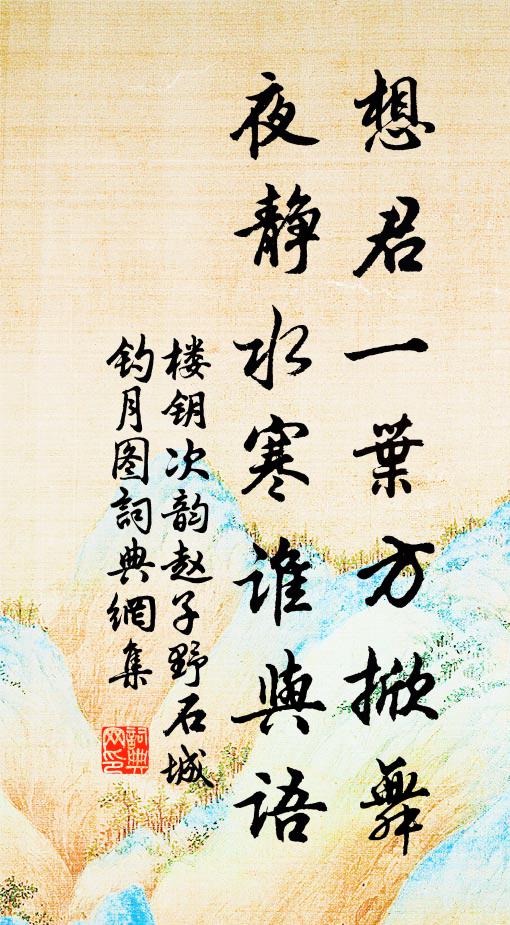 想君一葉方掀舞
夜静水寒谁與語
楼钥次韵赵子野石城
钓月图詞典網集
詞典
网印